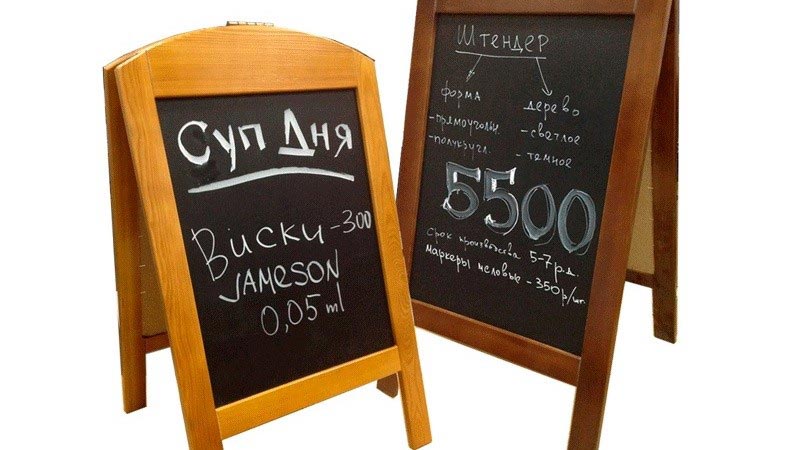 Суп Дня
Виски-300
JAMESON
0,05 ml
Штендер
форма
-прямоугольн.
-полукругл.
дерево
-светлое
-темное
5500
срок производства 5-7 р.д.
маркеры меловые -350р/шт.